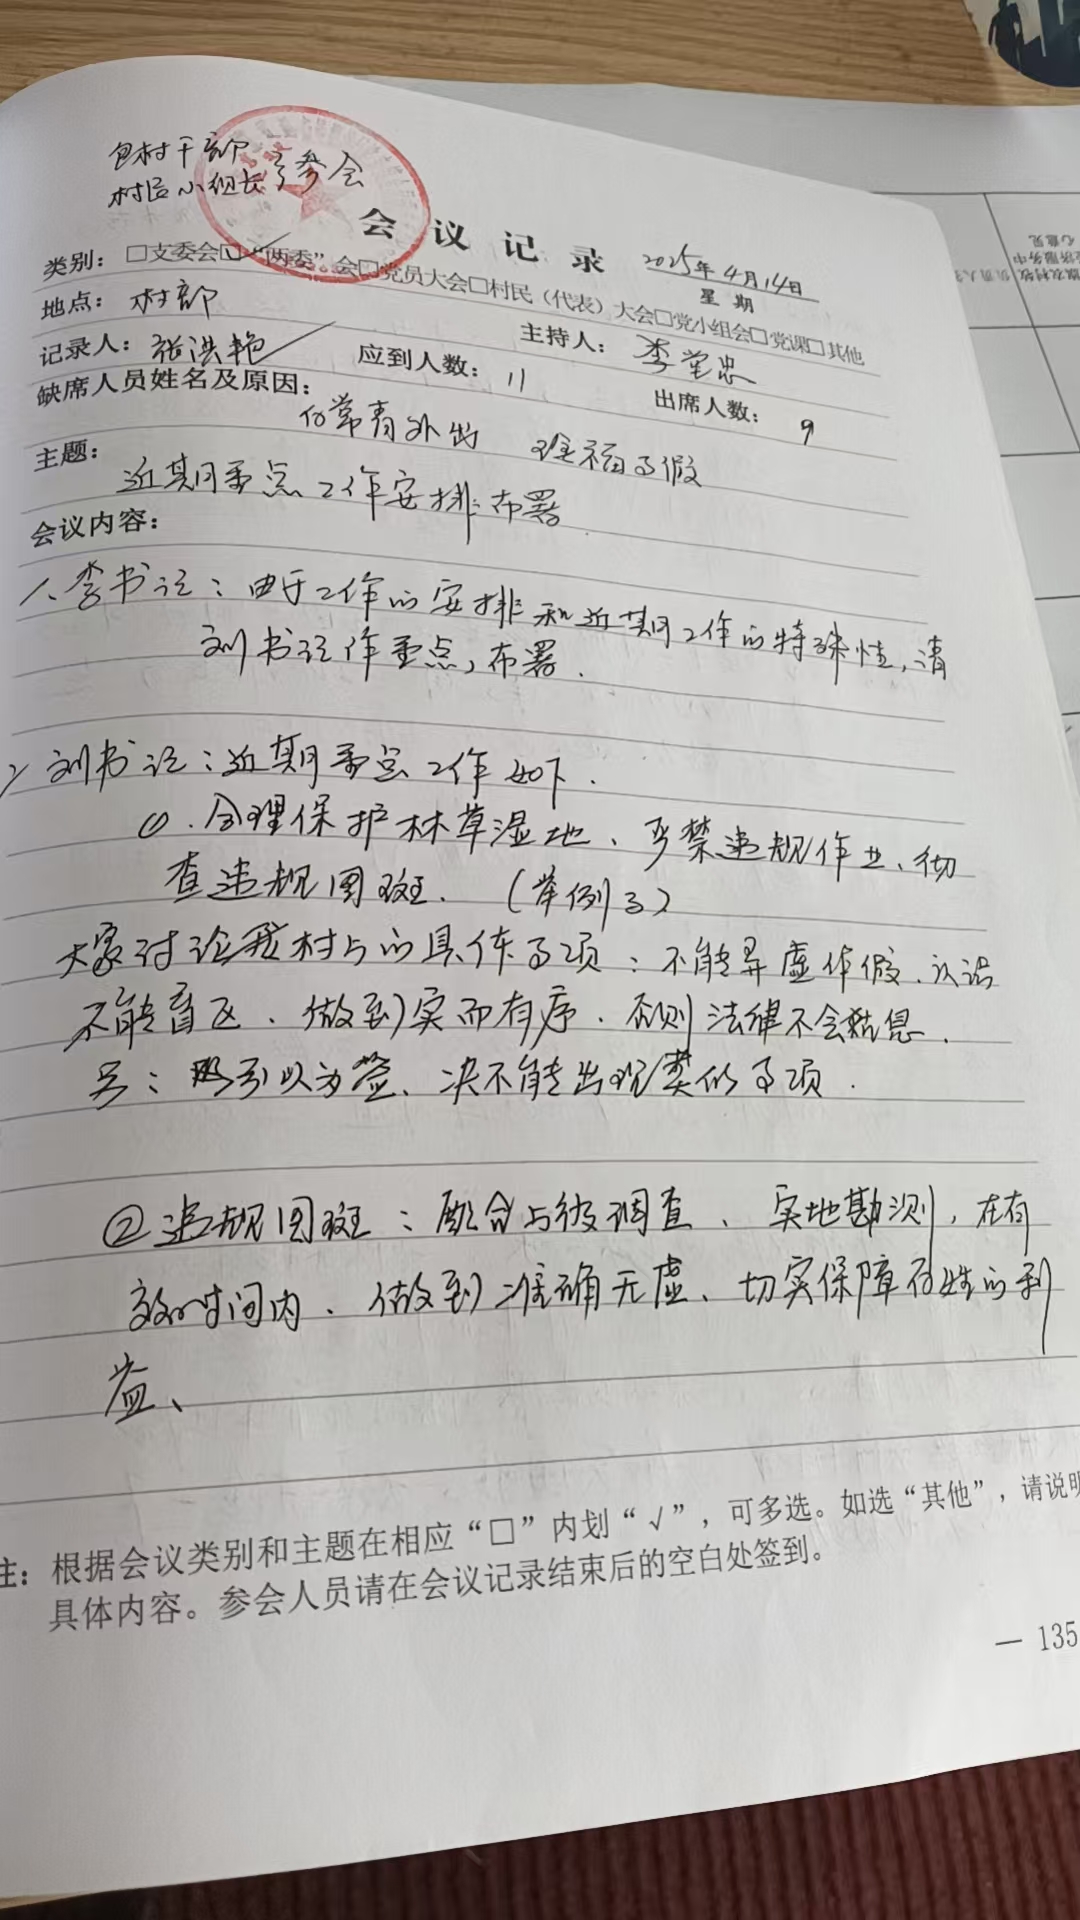 包村干部
村居小组长参会
会议记录
2025年4月14日
星期
类别：□支委会□“两委”会□党员大会□村民（代表）大会□党小组会□党课□其他
地点：村部
主持人：李堂忠
记录人：张洪艳
应到人数：11
出席人数：9
缺席人员姓名及原因：
常青外出 福事假
主题：
近期重点工作安排布署
会议内容：
1、李书记：由于工作的安排和近期工作的特殊性，请
刘书记作重点布署.
2 刘书记：近期重点工作如下.
①.合理保护林草湿地、严禁违规作业、彻
查违规图斑.（举例子）
大家讨论我村与的具体事项：不能弄虚作假、认识
不能盲区、做到实而有序.否则法律不会姑息.
另：引以为鉴、决不能出现类似事项.
②违规图斑：配合与彼调查、实地勘测，在有
效时间内、做到准确无虚、切实保障百姓的利
益、
注：根据会议类别和主题在相应“□”内划“√”，可多选。如选“其他”，请说明
具体内容。参会人员请在会议记录结束后的空白处签到。
— 135